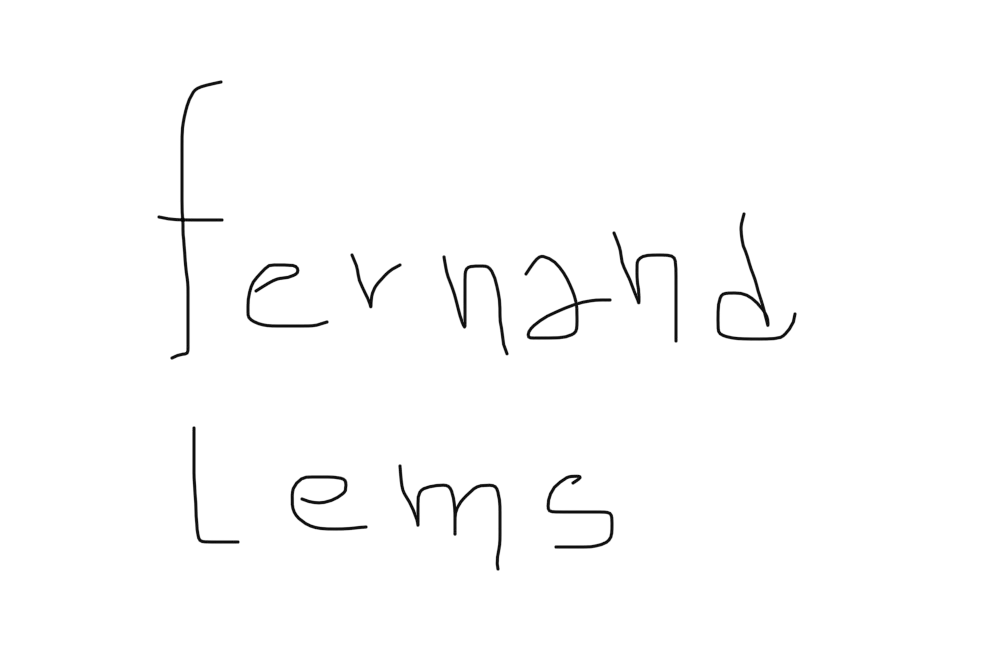 fernand
Lems